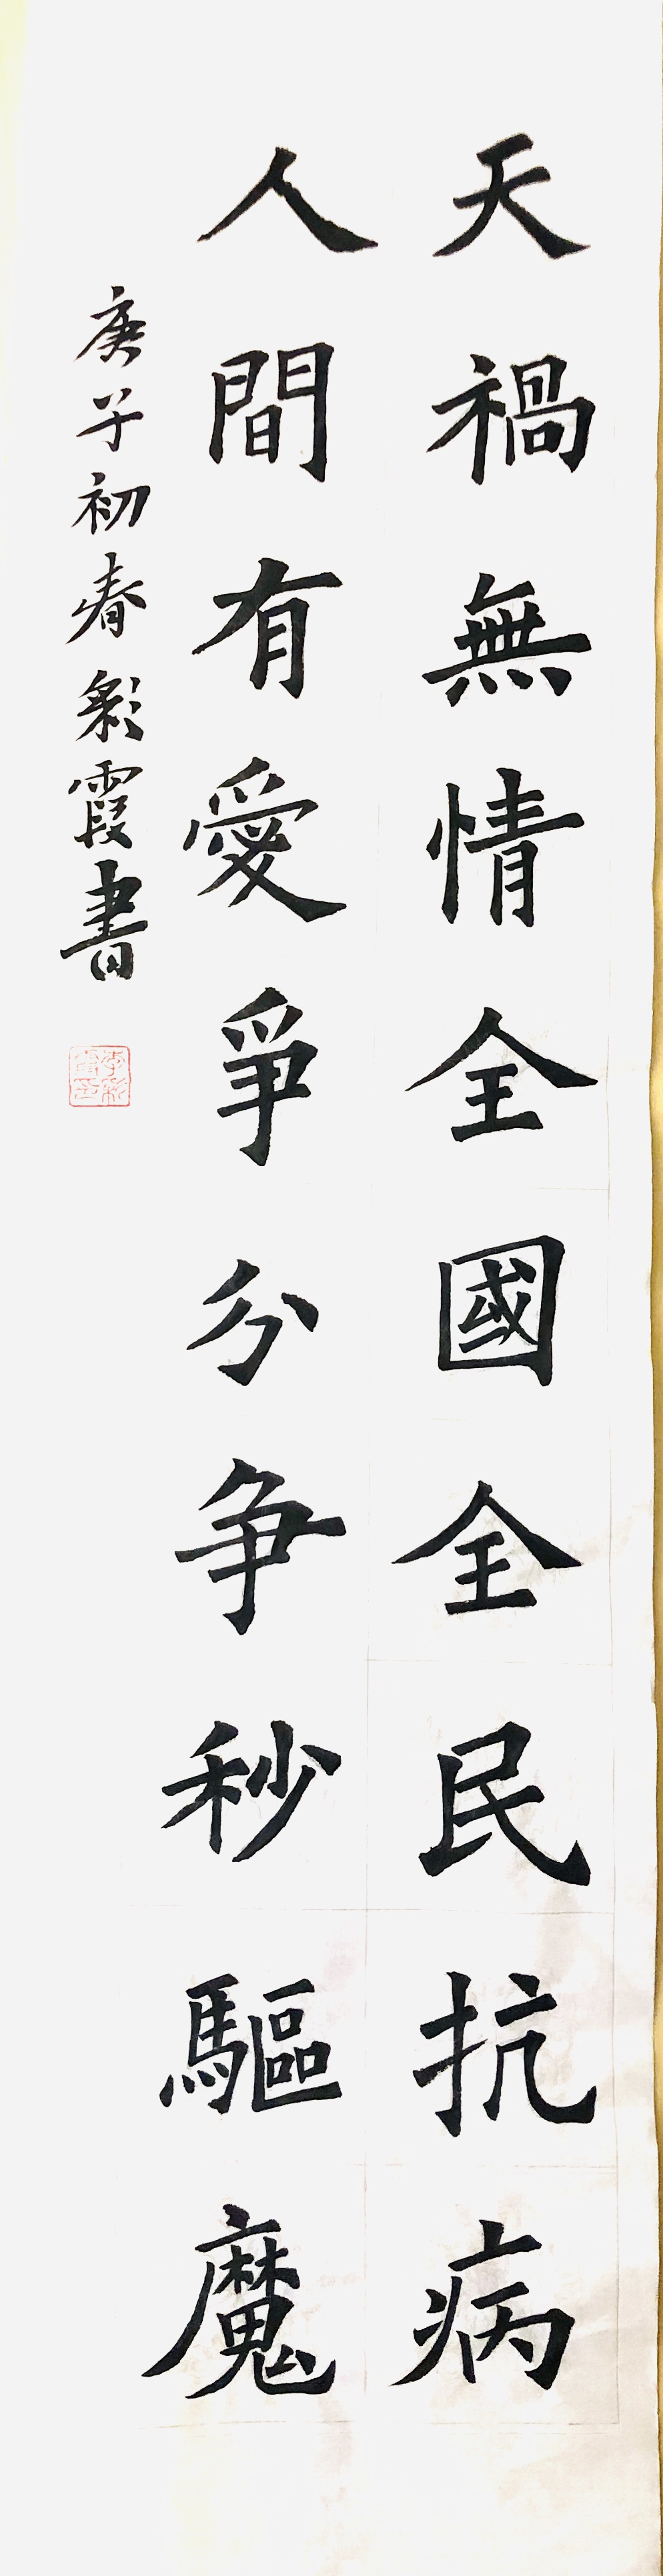 天禍無情全國全民抗病
人間有愛爭分争秒驅魔
庚子初春彩霞書